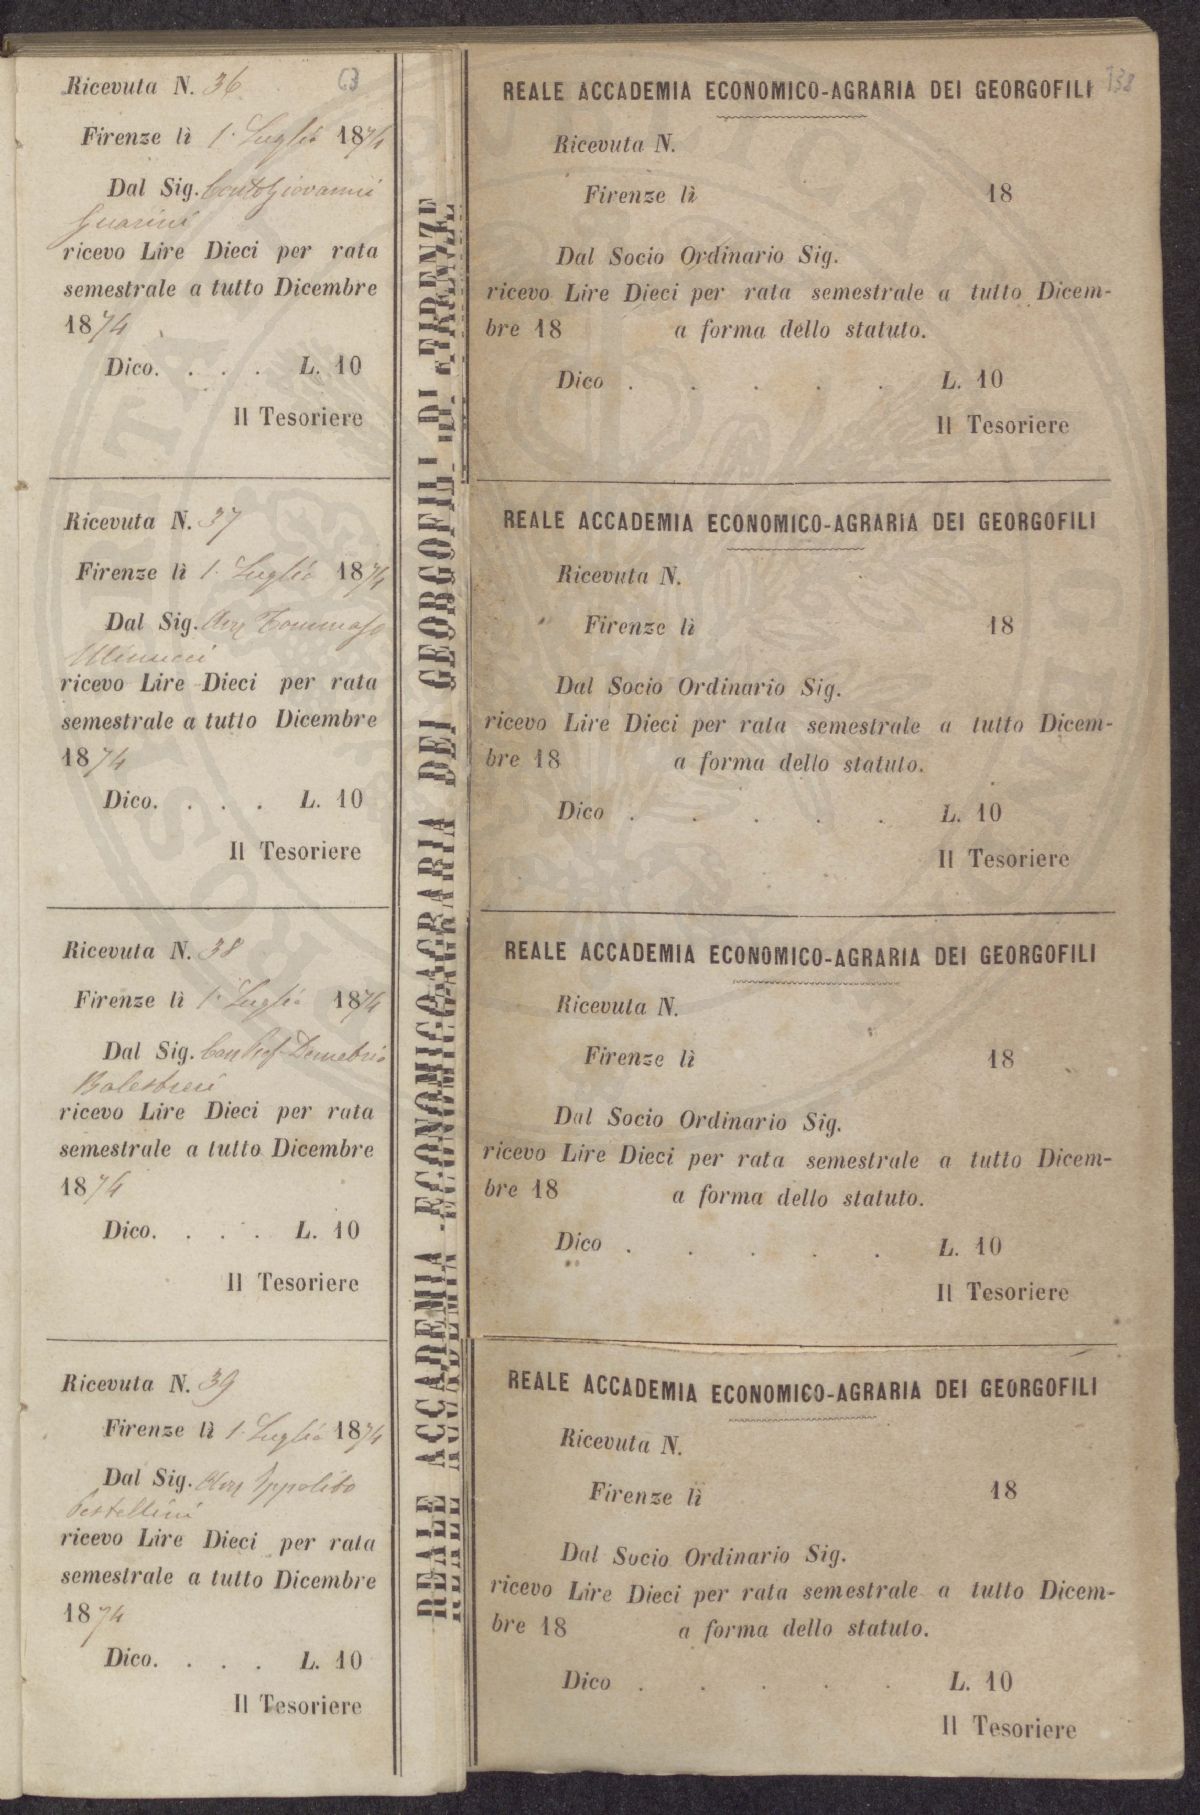 Ricevuta N. 36
Firenze lì 1. Luglio 1874
Dal Sig. Conte Giovanni
Guarini
ricevo Lire Dieci per rata
semestrale a tutto Dicembre
1874
Dico. . . . L. 10
Il Tesoriere
Ricevuta N. 37
Firenze lì 1. Luglio 1874
Dal Sig. Avv Tommaso
Minucci
ricevo Lire Dieci per rata
semestrale a tutto Dicembre
1874
Dico. . . . L. 10
Il Tesoriere
Ricevuta N. 38
Firenze lì 1. Luglio 1874
Dal Sig. Can Prof Demetrio
Balestrieri
ricevo Lire Dieci per rata
semestrale a tutto Dicembre
1874
Dico. . . . L. 10
Il Tesoriere
Ricevuta N. 39
Firenze lì 1. Luglio 1874
Dal Sig. Avv Ippolito
Pestellini
ricevo Lire Dieci per rata
semestrale a tutto Dicembre
1874
Dico. . . . L. 10
Il Tesoriere
REALE ACCADEMIA ECONOMICO-AGRARIA DEI GEORGOFILI DI FIRENZE
138
REALE ACCADEMIA ECONOMICO-AGRARIA DEI GEORGOFILI
Ricevuta N.
Firenze lì 18
Dal Socio Ordinario Sig.
ricevo Lire Dieci per rata semestrale a tutto Dicem-
bre 18 a forma dello statuto.
Dico . . . . . L. 10
Il Tesoriere
REALE ACCADEMIA ECONOMICO-AGRARIA DEI GEORGOFILI
Ricevuta N.
Firenze lì 18
Dal Socio Ordinario Sig.
ricevo Lire Dieci per rata semestrale a tutto Dicem-
bre 18 a forma dello statuto.
Dico . . . . . L. 10
Il Tesoriere
REALE ACCADEMIA ECONOMICO-AGRARIA DEI GEORGOFILI
Ricevuta N.
Firenze lì 18
Dal Socio Ordinario Sig.
ricevo Lire Dieci per rata semestrale a tutto Dicem-
bre 18 a forma dello statuto.
Dico . . . . . L. 10
Il Tesoriere
REALE ACCADEMIA ECONOMICO-AGRARIA DEI GEORGOFILI
Ricevuta N.
Firenze lì 18
Dal Socio Ordinario Sig.
ricevo Lire Dieci per rata semestrale a tutto Dicem-
bre 18 a forma dello statuto.
Dico . . . . . L. 10
Il Tesoriere